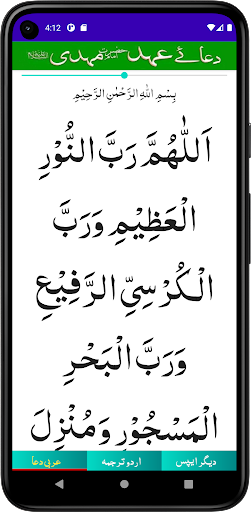 4:12
دعائے عہد حضرت امام مہدی
بِسْمِ اللهِ الرَّحْمٰنِ الرَّحِيْمِ
اَللّٰهُمَّ رَبَّ النُّوْرِ
الْعَظِيْمِ وَرَبَّ
الْكُرْسِيِّ الرَّفِيْعِ
وَرَبَّ الْبَحْرِ
الْمَسْجُوْرِ وَمُنْزِلَ
عربی دعا
اردو ترجمہ
دیگر ایپس